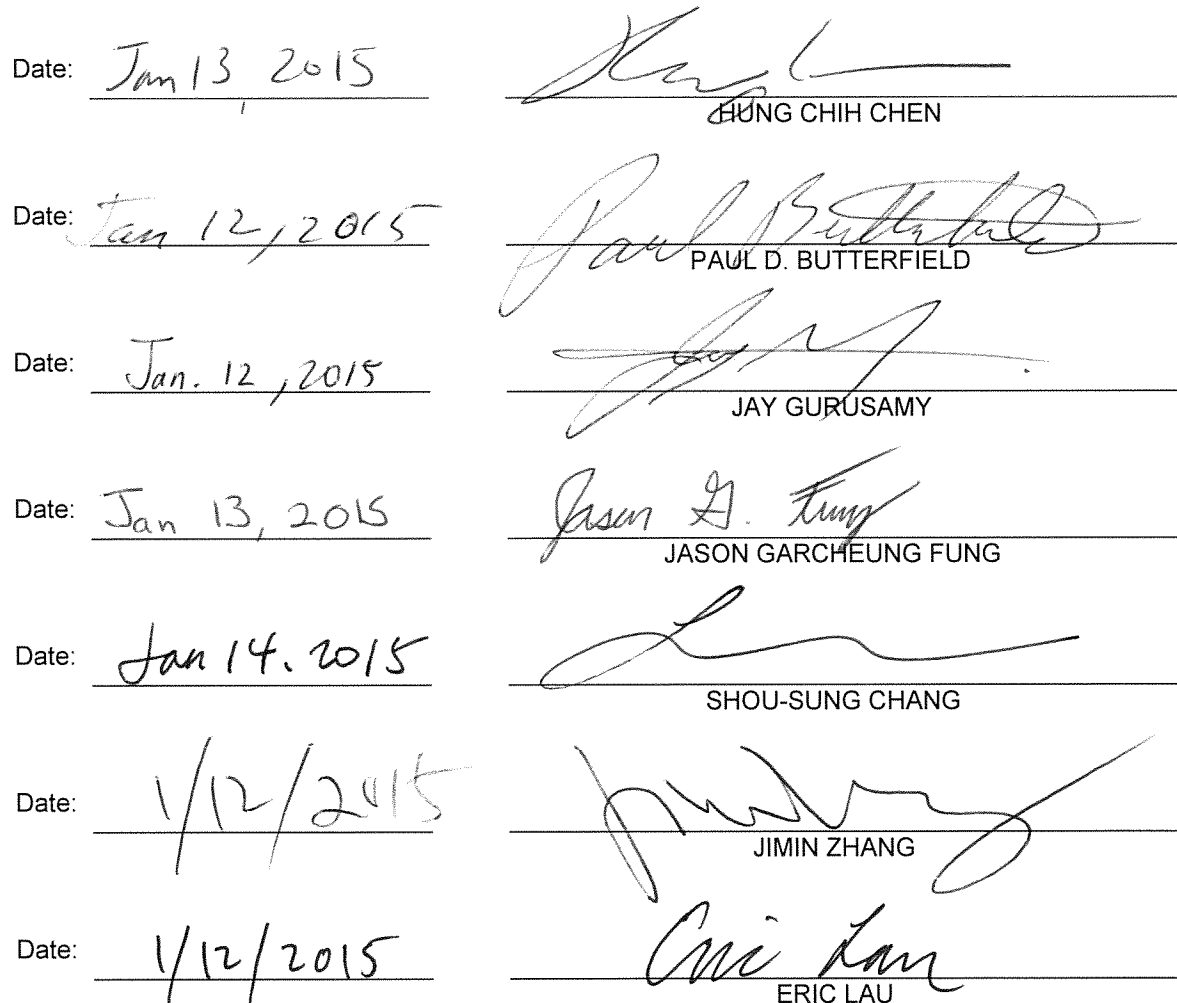 Date: Jan 13, 2015
HUNG CHIH CHEN
Date: Jan 12, 2015 Paul Butterfield
PAUL D. BUTTERFIELD
Date: Jan. 12, 2015
JAY GURUSAMY
Date: Jan 13, 2015 Jason G. Fung
JASON GARCHEUNG FUNG
Date: Jan 14. 2015
SHOU-SUNG CHANG
Date: 1/12/2015
JIMIN ZHANG
Date: 1/12/2015 Eric Lau
ERIC LAU